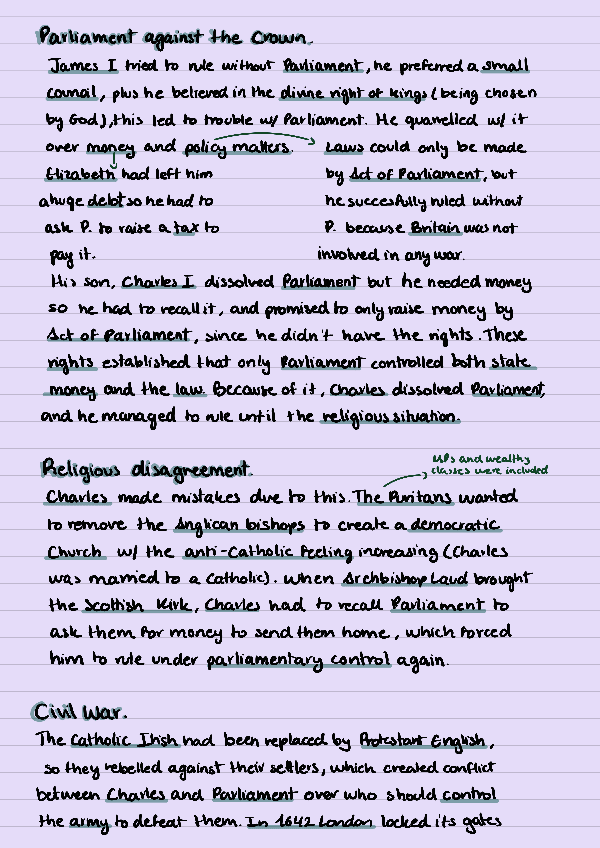 Parliament against the Crown.
James I tried to rule without Parliament, he preferred a small
council, plus he believed in the divine right of kings (being chosen
by God), this led to trouble w/ Parliament. He quarrelled w/ it
over money and policy matters.
Elizabeth had left him
a huge debt so he had to
ask P. to raise a tax to
pay it.
Laws could only be made
by Act of Parliament, but
he succesfully ruled without
P. because Britain was not
involved in any war.
His son, Charles I dissolved Parliament but he needed money
so he had to recall it, and promised to only raise money by
Act of Parliament, since he didn't have the rights. These
rights established that only Parliament controlled both state
money and the law. Because of it, Charles dissolved Parliament,
and he managed to rule until the religious situation.
Religious disagreement.
MPs and wealthy
classes were included
Charles made mistakes due to this. The Puritans wanted
to remove the Anglican bishops to create a democratic
Church w/ the anti-Catholic feeling increasing (Charles
was married to a Catholic). When Archbishop Laud brought
the Scottish Kirk, Charles had to recall Parliament to
ask them for money to send them home, which forced
him to rule under parliamentary control again.
Civil War.
The Catholic Irish had been replaced by Protestant English,
so they rebelled against their settlers, which created conflict
between Charles and Parliament over who should control
the army to defeat them. In 1642 London locked its gates